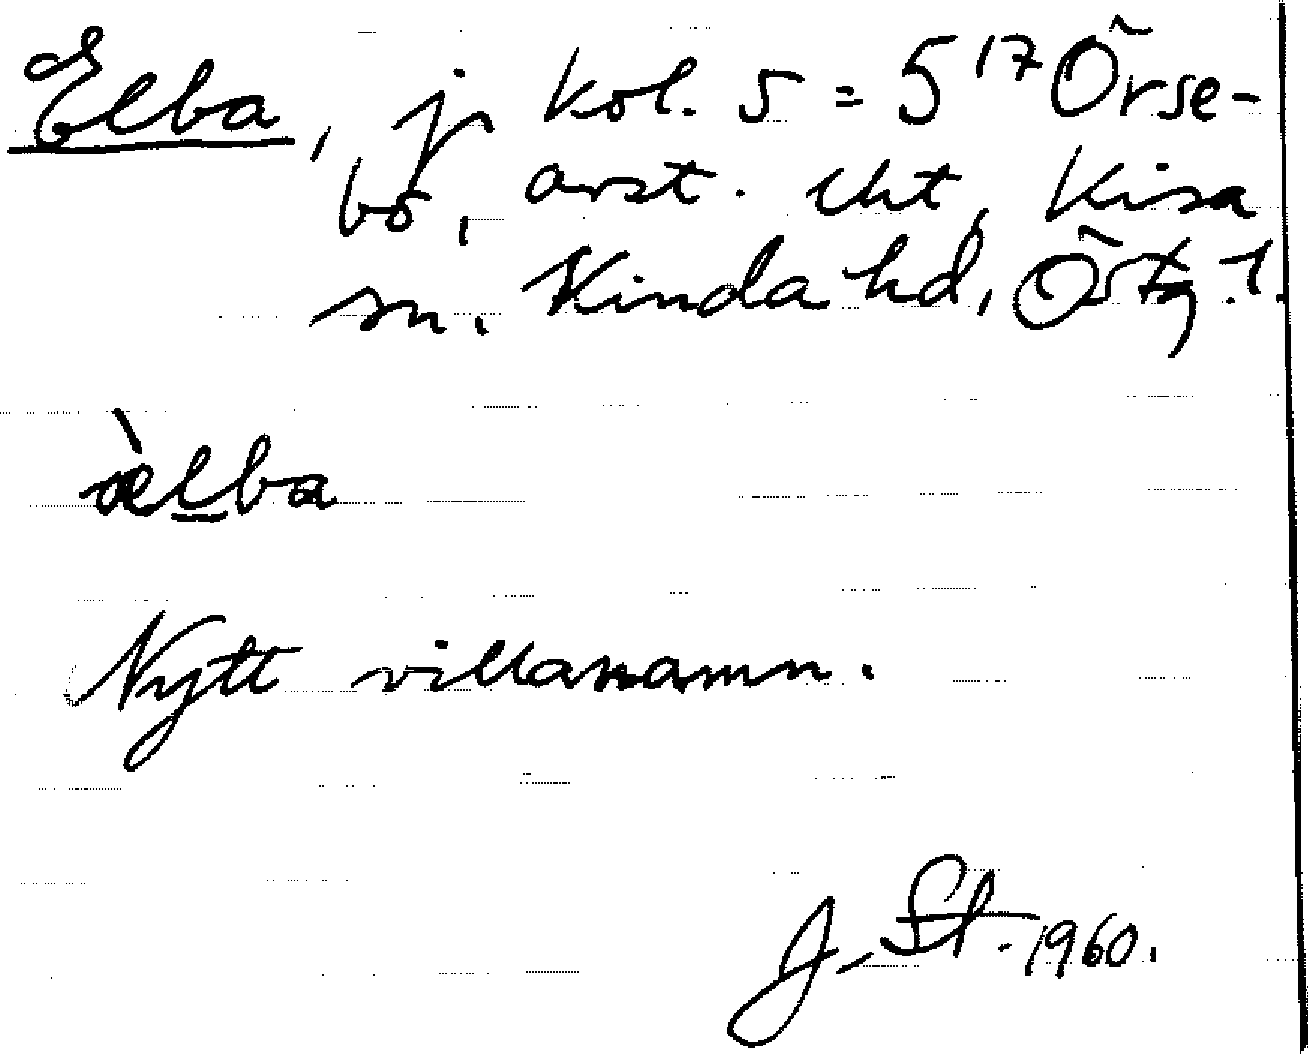 Elba, j kol. 5 = 5¹⁷ Örse-
bo, avst. lht, Kisa
sn. Kinda hd, Östg. l.
æ̀lba
Nytt villanamn.
J. St. 1960.